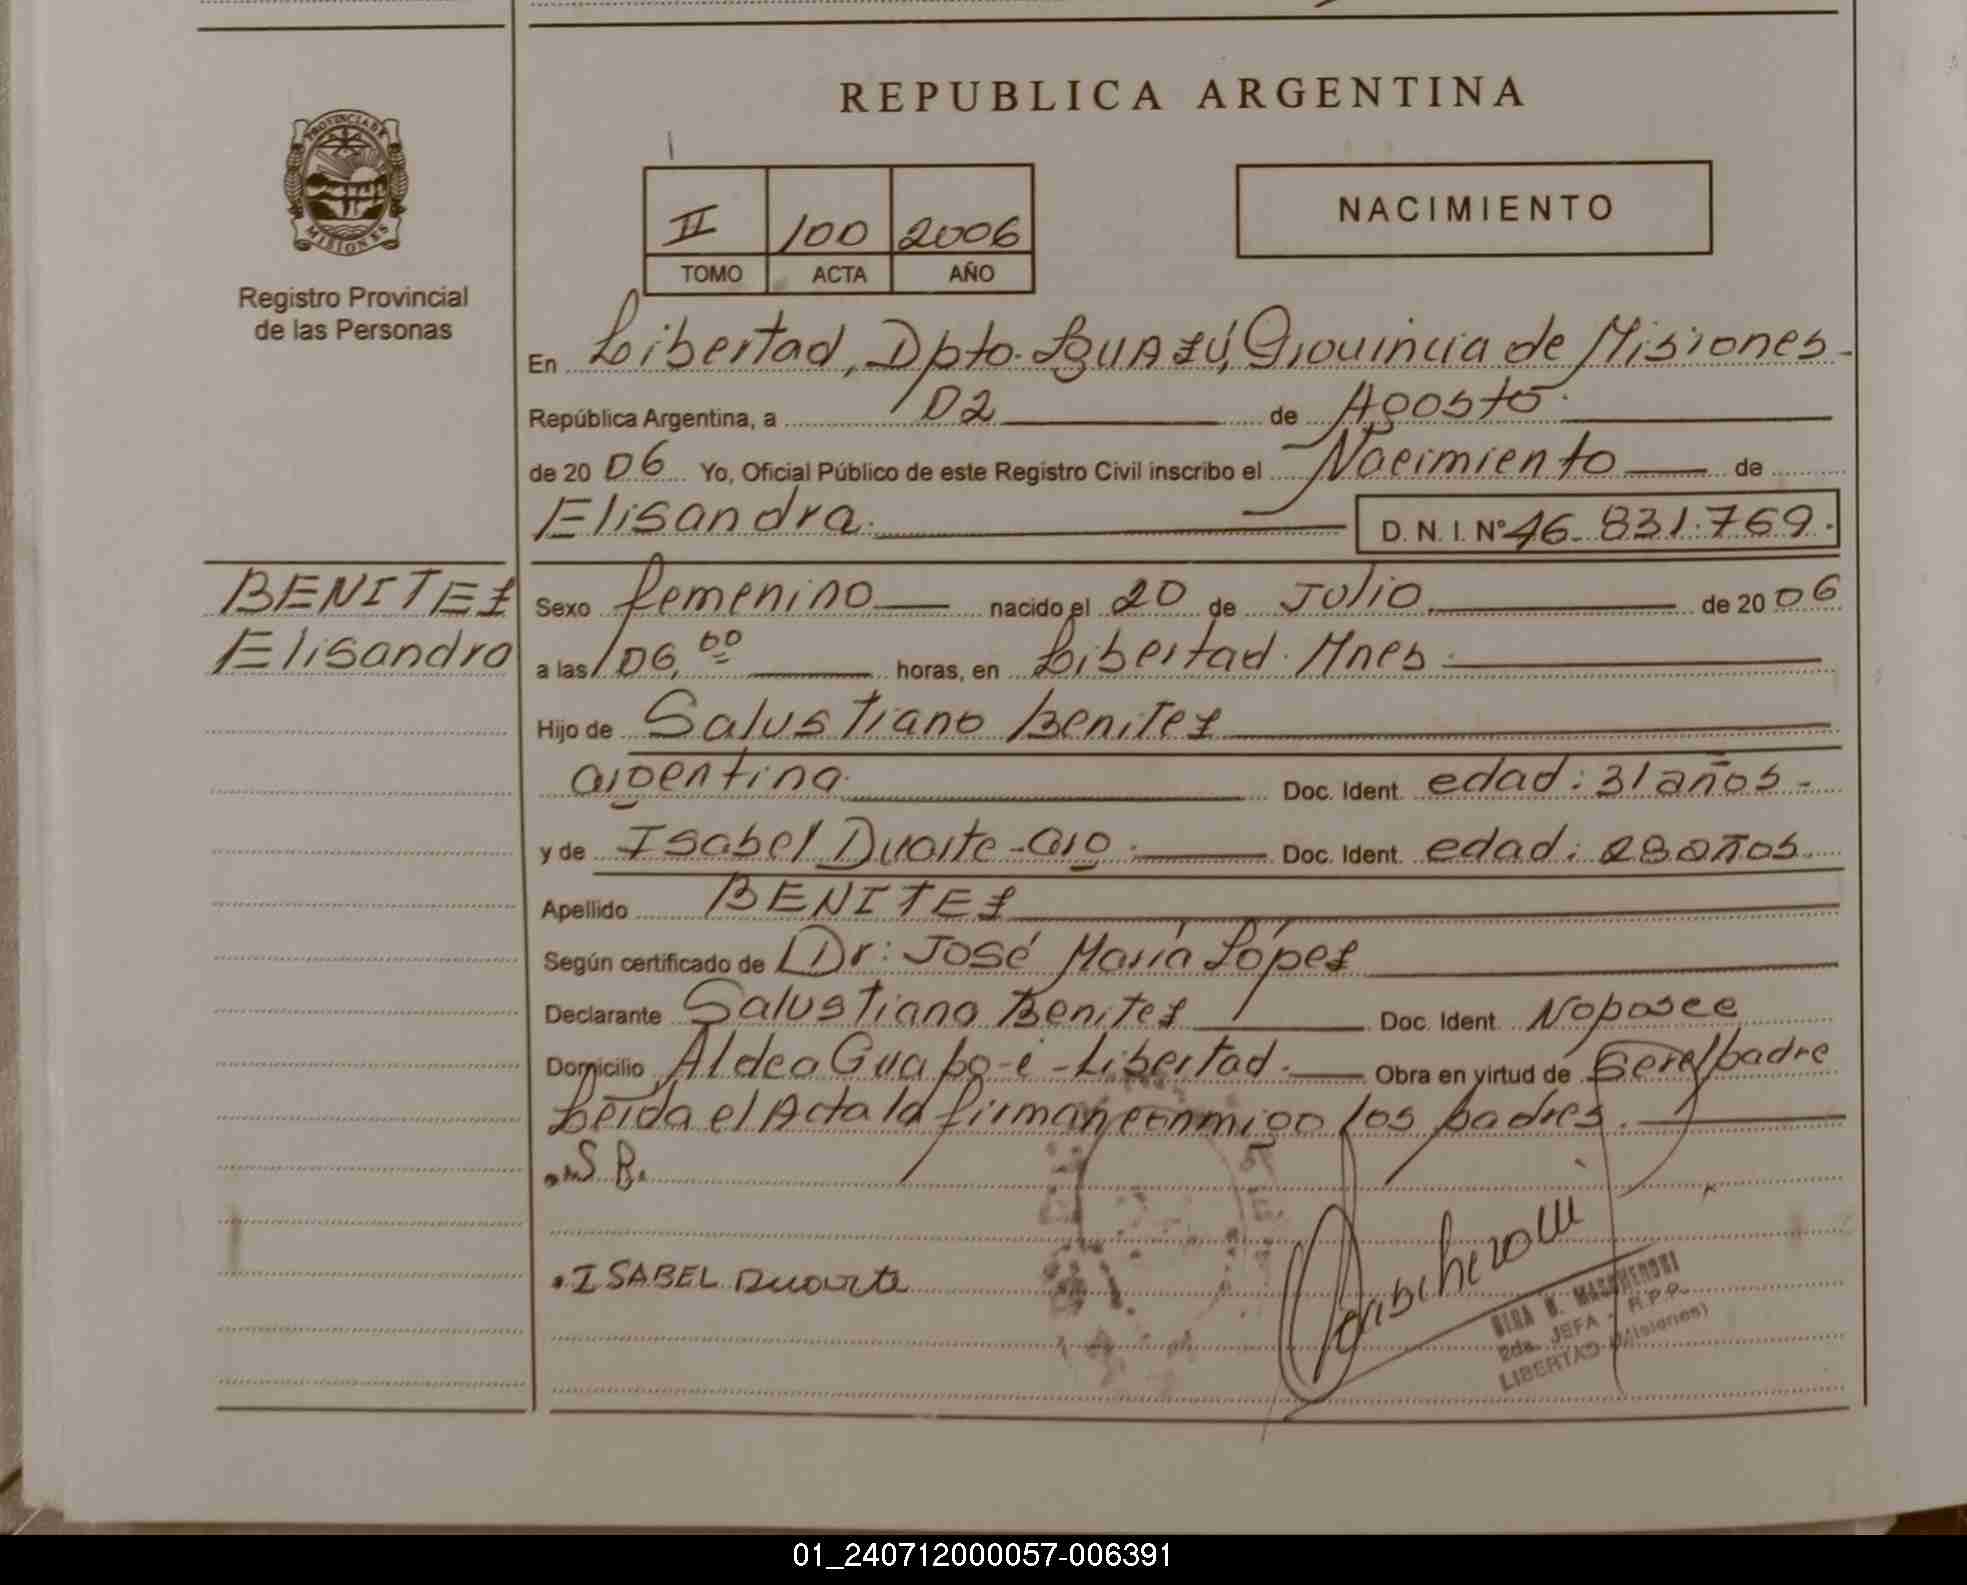 REPUBLICA ARGENTINA
PROVINCIA DE
MISIONES
Registro Provincial
de las Personas
II 100 2006
TOMO ACTA AÑO
NACIMIENTO
En Libertad, Dpto. Iguazú, Provincia de Misiones
República Argentina, a 02 de Agosto
de 20 06 Yo, Oficial Público de este Registro Civil inscribo el Nacimiento de
Elisandra. D. N. I. Nº 46.831.769.
BENITEZ
Elisandra
Sexo femenino nacido el 20 de Julio de 20 06
a las 06,00 horas, en Libertad. Mnes.
Hijo de Salustiano Benitez
argentina Doc. Ident. edad: 31 años.
y de Isabel Duarte - arg. Doc. Ident. edad: 28 años.
Apellido BENITEZ
Según certificado de Dr: José María López
Declarante Salustiano Benitez Doc. Ident. No posee
Domicilio Aldea Guapo-i - Libertad. Obra en virtud de Ser el padre
Leída el Acta la firman conmigo los padres.
S. B.
ISABEL Duarte
2da. JEFA - R.P.P.
LIBERTAD (Misiones)
01_240712000057-006391